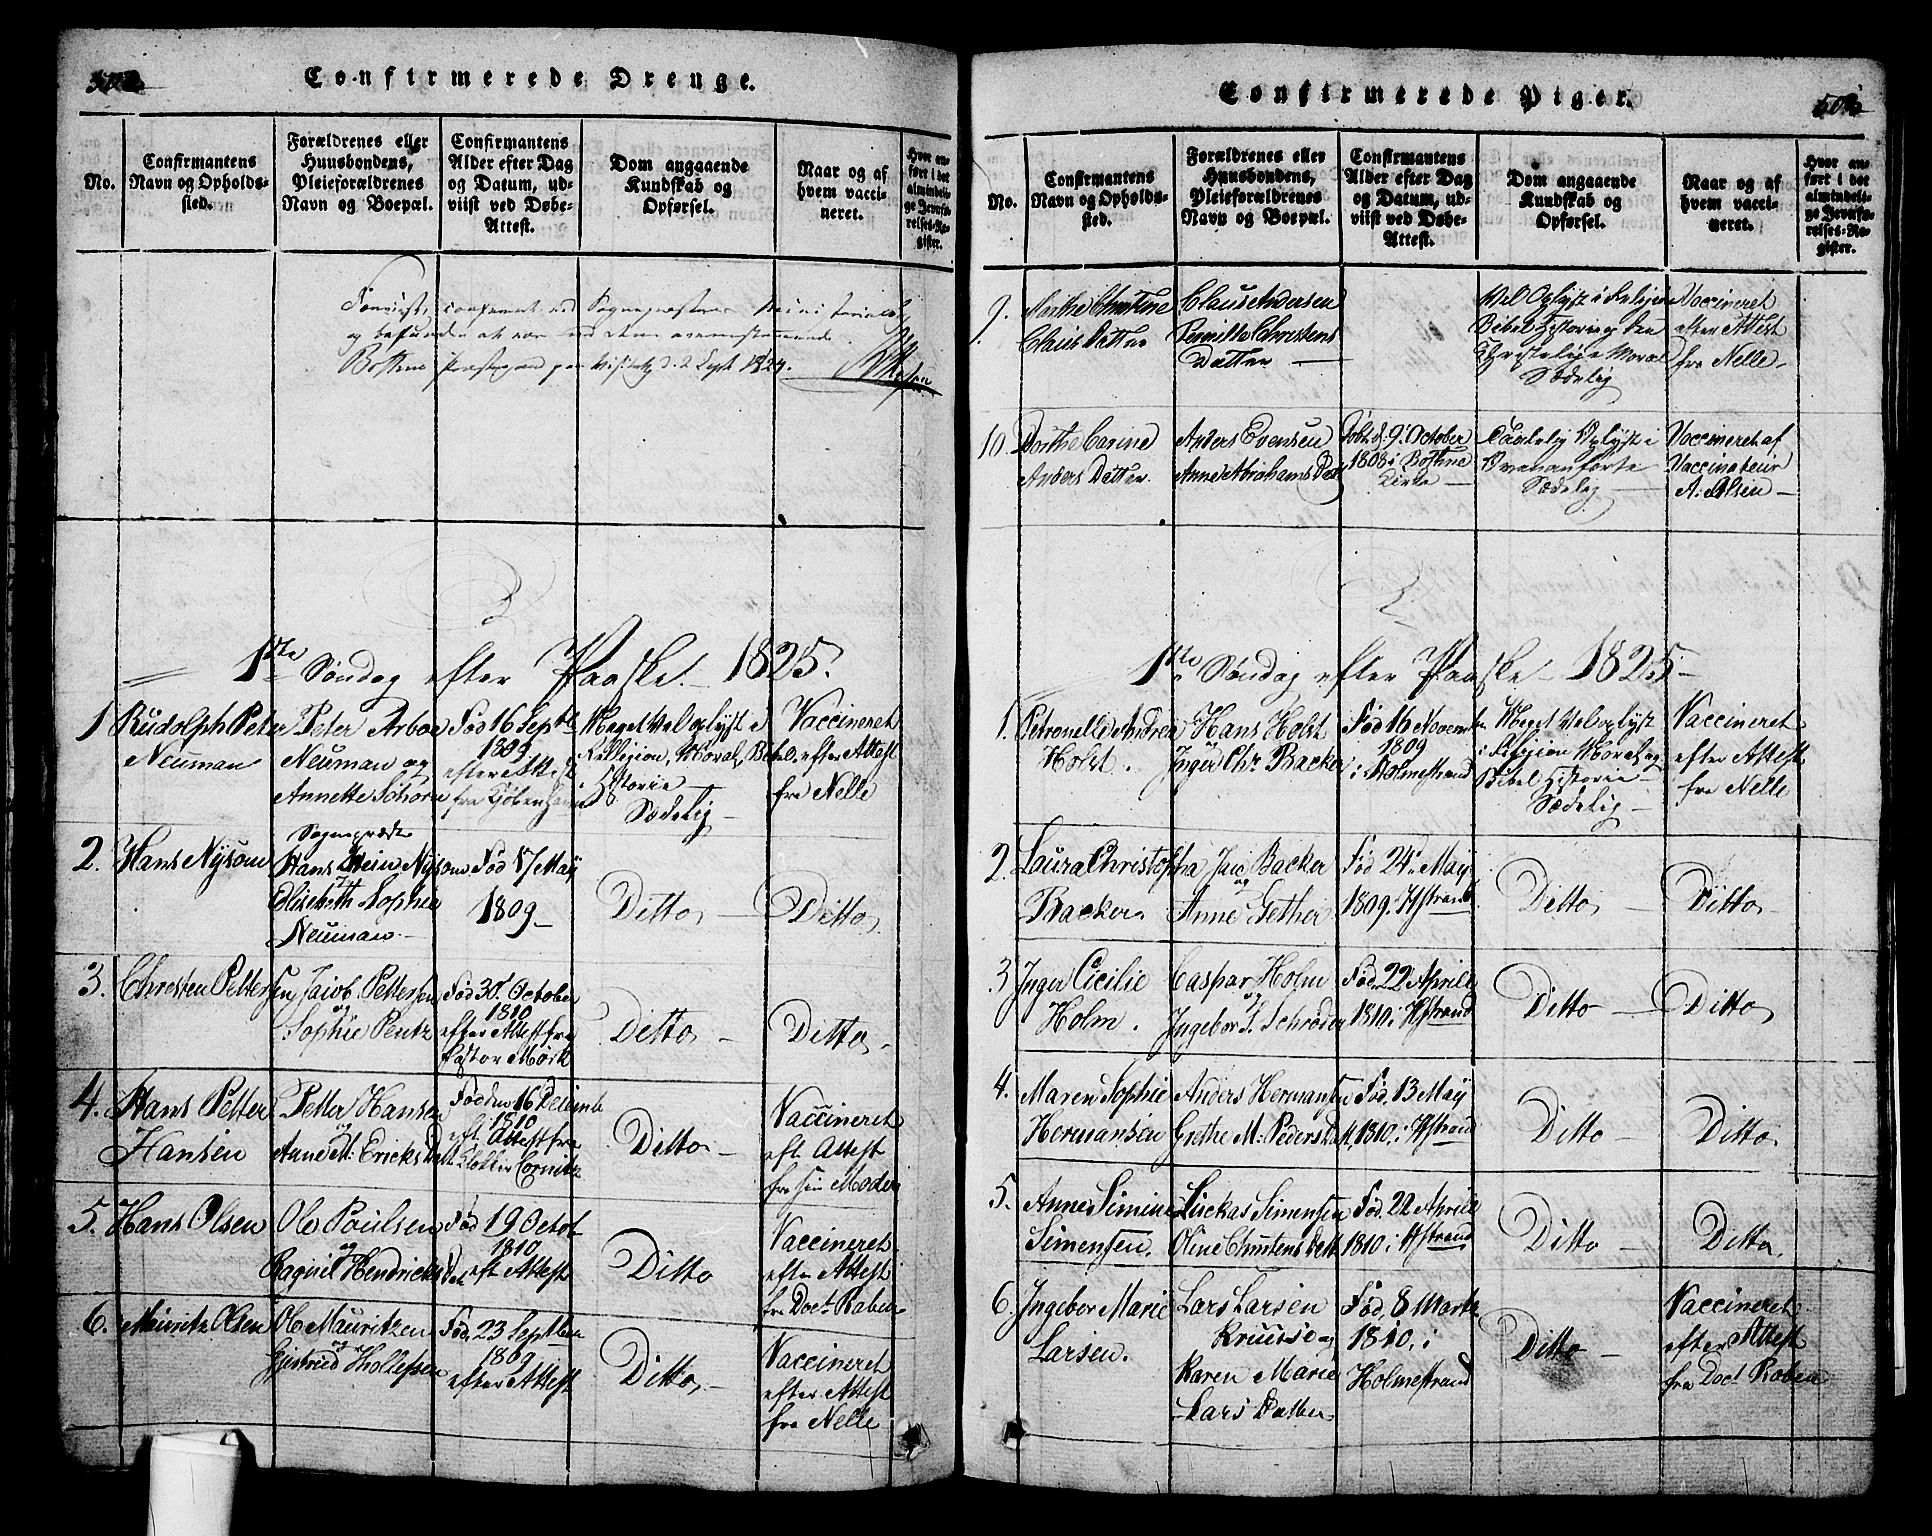 Confirmerede Drenge.
No.
Confirmantens
Navn og Opholds-
sted.
Forældrenes eller
Huusbondens,
Pleieforældrenes
Navn og Boepæl.
Confirmantens
Alder efter Dag
og Datum, ud-
viist ved Døbe-
Attest.
Dom angaaende
Kundskab og
Opførsel.
Naar og af
hvem vacci-
neret.
Hvor an-
ført i det
almindeli-
ge Jevnfø-
relses-Re-
gister.
Bothne Præstegaard paa Visitatz d. 2 Sept 1824.
1ste Søndag efter Paaske 1825.
1
Rudolph Peter
Neuman
Peter Arboe
Neuman og
Annette Schorn
Fød 16 Septb
1809
efter Attest
fra Kjøbenhavn
Meget Vel oplyst i
Religion, Moral, Bibel
Historie
Sædelig
Vaccineret
efter Attest
fra Nelle
2.
Hans Nysom
Sognepræst
Hans Hein Nysom
Elisabeth Sophie
Neuman
Fød 17 May
1809
Ditto
Ditto
3.
Christen Pettersen
Jacob Pettersen
og
Sophie Pentz
Fød 30 October
1810
efter Attest fra
Pastor Mørk
Ditto
Ditto
4.
Hans Petter
Hansen
Petter Hansen
og
Anne M. Ericks Datt
Fød den 16 Decemb
1810
eft Attest fra
Klokker
Ditto
Vaccineret
eft Attest
fra sin Moder
5.
Hans Olsen
Ole Poulsen
og
Ragnil Hendricks Dat
Fød 19 Octob
1810
eft Attest
Ditto
Vaccineret
efter Attest
fra Doct. Raben
6.
Mauritz Olsen
Ole Mauritzen
og
Gjertrud Hollesen
Fød, 23 Septben
1809
efter Attest
Ditto
Vaccineret
efter Attest
fra Nelle
Confirmerede Piger.
No.
Confirmantens
Navn og Opholds-
sted.
Forældrenes eller
Huusbondens,
Pleieforældrenes
Navn og Boepæl.
Confirmantens
Alder efter Dag
og Datum, ud-
viist ved Døbe-
Attest.
Dom angaaende
Kundskab og
Opførsel.
Naar og af
hvem vacci-
neret.
Hvor an-
ført i det
almindeli-
ge Jevnfø-
relses-Re-
gister.
9.
Marthe Christine
Claus Datter
Claus Andersen
Pernille Christens
Datter
Vel Oplyst i Religion
Bibel Historie og den
Christelige Moral
Sædelig
Vaccineret
efter Attest
fra Nelle
10.
Dorthe Carine
Anders Datter.
Anders Evensen
Anne Abrahams Dat
Døbt d. 9 October
1808 i Bothne
Kirke
Taalelig Oplyst i
Ovenanførte
Sædelig
Vaccineret af
Vaccinateur
A. Olsen
1ste Søndag efter Paaske 1825
1.
Petronelle Andrea
Holst.
Hans Holst
og
Inger Chr. Backer
Fød 16 Novemb
1809
i Holmestrand
Meget Vel oplyst
i Religion Moral og
Bibel Historie
Sædelig
Vaccineret
efter Attest
fra Nelle
2.
Laura Christopha
Backer.
Jac Backer
og
Anne Gether
Fød 24 May
1809. i Hstrand
Ditto
Ditto
3
Inger Cicilie
Holm.
Caspar Holm
og
Ingebor S. Schrøder
Fød, 22 Aprill
1810. i Hstrand
Ditto
Ditto
4.
Maren Sophie
Hermansen
Anders Hermansen
Grethe M. Peders Datt
Fød, 13 May
1810. i Hstrand
Ditto
Ditto
5.
Anne Simine
Simensen.
Luckas Simensen
Oline Christens Datt
Fød, 22 Aprill
1810 i Hstrand
Ditto
Ditto
6.
Ingebor Marie
Larsen.
Lars Larsen
Kruuse og
Karen Marie
Lars Datter
Fød, 8 Martz
1810, i
Holmestrand
Ditto
Vaccineret
efter Attest
fra Doct Raben